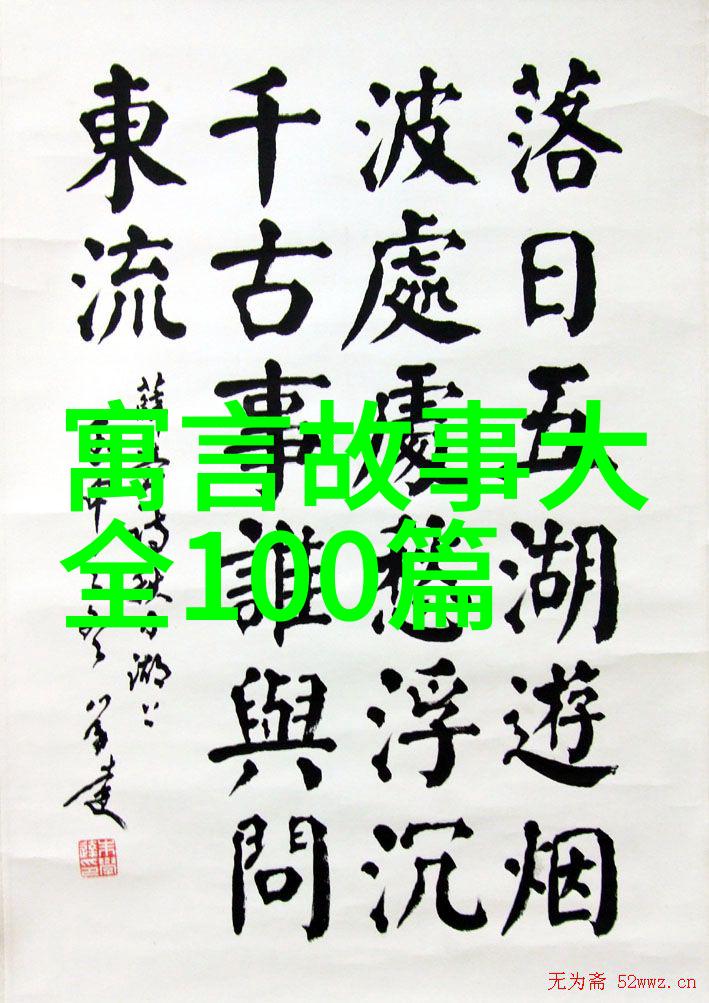 落日五湖遊烟
波處處愁浮沉
千古事誰與問
東流
秋日湖上
寓言故事大
全100篇
无为斋 52wwz.cn